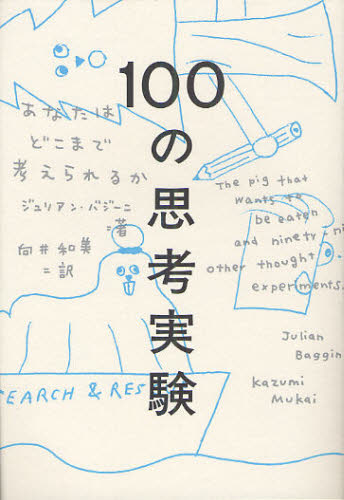 100の思考実験
あなたは
どこまで
考えられるか
ジュリアン・バジーニ
=著
向井和美
=訳
The pig that
wants to
be eaten
and ninety-ni
other thought
experiments.
Julian
Baggin
Kazumi
Mukai
EARCH & RES